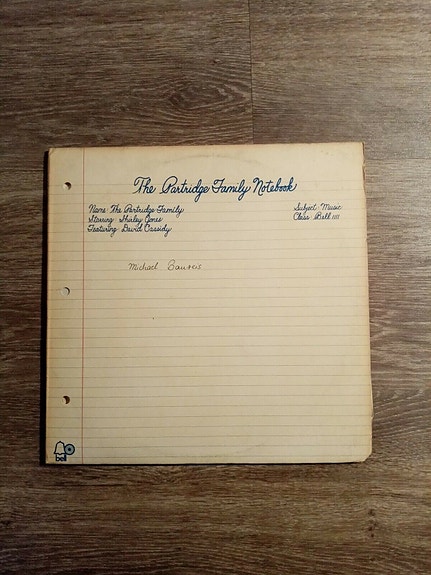 The Partridge Family Notebook
Name: The Partridge Family
Subject: Music
Starring: Shirley Jones
Class: Bell 1111
Featuring: David Cassidy
Michael
bell